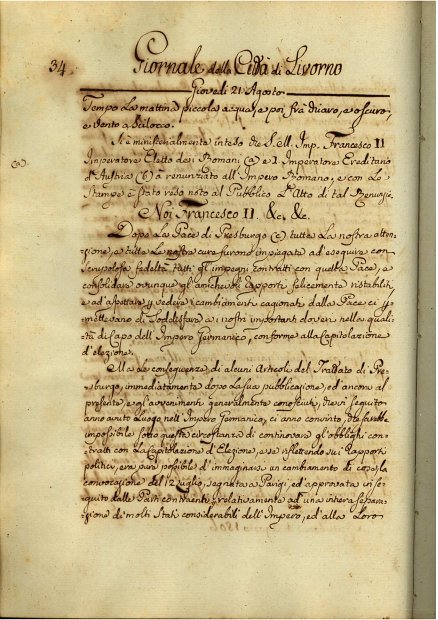 34. Giornale della Città di Livorno
Giovedì 21. Agosto
Tempo La mattina piccola acqua, e poi frà chiaro, e oscuro,
e Vento a Scilocco.
Si è ministerialmente inteso che S. M. Imp. Francesco II
Imperatore Eletto dei Romani (a) e I. Imperatore Ereditario
d'Austria (b) à renunziato all'Impero Romano, e con Le
Stampe è stato reso noto al Pubblico L'Atto di tal Renunzia.
(a)
Noi Francesco II. &c, &c.
Dopo La Pace di Presburgo (c) tutta La nostra atten-
zione, e tutte Le nostre cure furono impiegate ad'eseguire con
Scrupolosa fedeltà tutti gl'impegni contratti con quella Pace, e
consolidare ovunque gli amichevoli Rapporti felicemente ristabiliti,
e ad'aspettare a vedere i cambiamenti cagionati dalla Pace ci per-
mettevano di Soddisfare a i nostri importanti doveri nella quali-
tà di Capo dell'Impero Germanico, conforme alla Capitolazione
d'elezione.
Ma Le conseguenze di alcuni Articoli del Trattato di Pre-
sburgo, immediatamente dopo La sua pubblicazione, ed ancora al
presente, e gl'avvenimenti generalmente conosciuti, che in seguito
anno avuto Luogo nell'Impero Germanico, ci anno convinto, che sarebbe
impossibile sotto queste circostanze di continovare gl'obblighi con-
tratti con La Capitolazione d'Elezione, e se riflettendo sui Rapporti
politici, era pure possibile d'immaginarsi un cambiamento di cose, la
convocazione del 12. Luglio, segnata a Parigi, ed'approvata in se-
guito dalle Parti contraenti, relativamente ad'una intera separa-
zione di molti Stati considerabili dell'Impero, ed'alla Loro